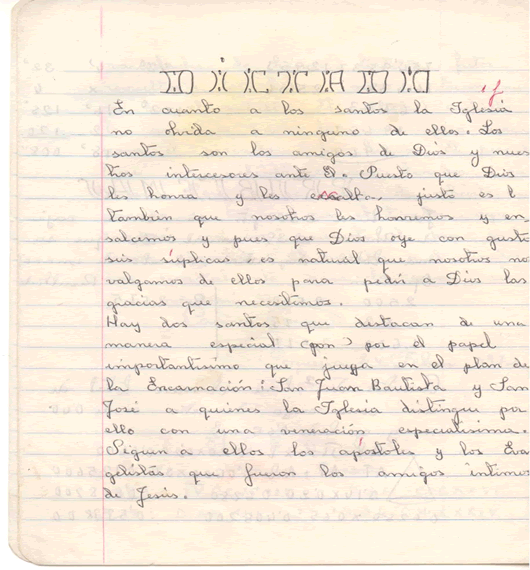 DICTADO
En cuanto a los santos la Iglesia
no olvida a ninguno de ellos. Los
santos son los amigos de Dios y nues
tros intercesores ante El. Puesto que Dios
les honra y los exalta, justo es
también que nosotros les honremos y en
salcemos y pues que Dios oye con gusto
sus súplicas es natural que nosotros no
valgamos de ellos para pedir a Dios las
gracias que necesitimos.
Hay dos santos que destacan de una
manera especial (pon) por el papel
importantisimo que juega en el plan de
la Encarnación: San Juan Bautista y San
José a quienes la Iglesia distingue por
ello con una veneración especialisima.
Siguen a ellos los apóstoles y los Eva
gelistas que fueron los amigos intimos
de Jesús.